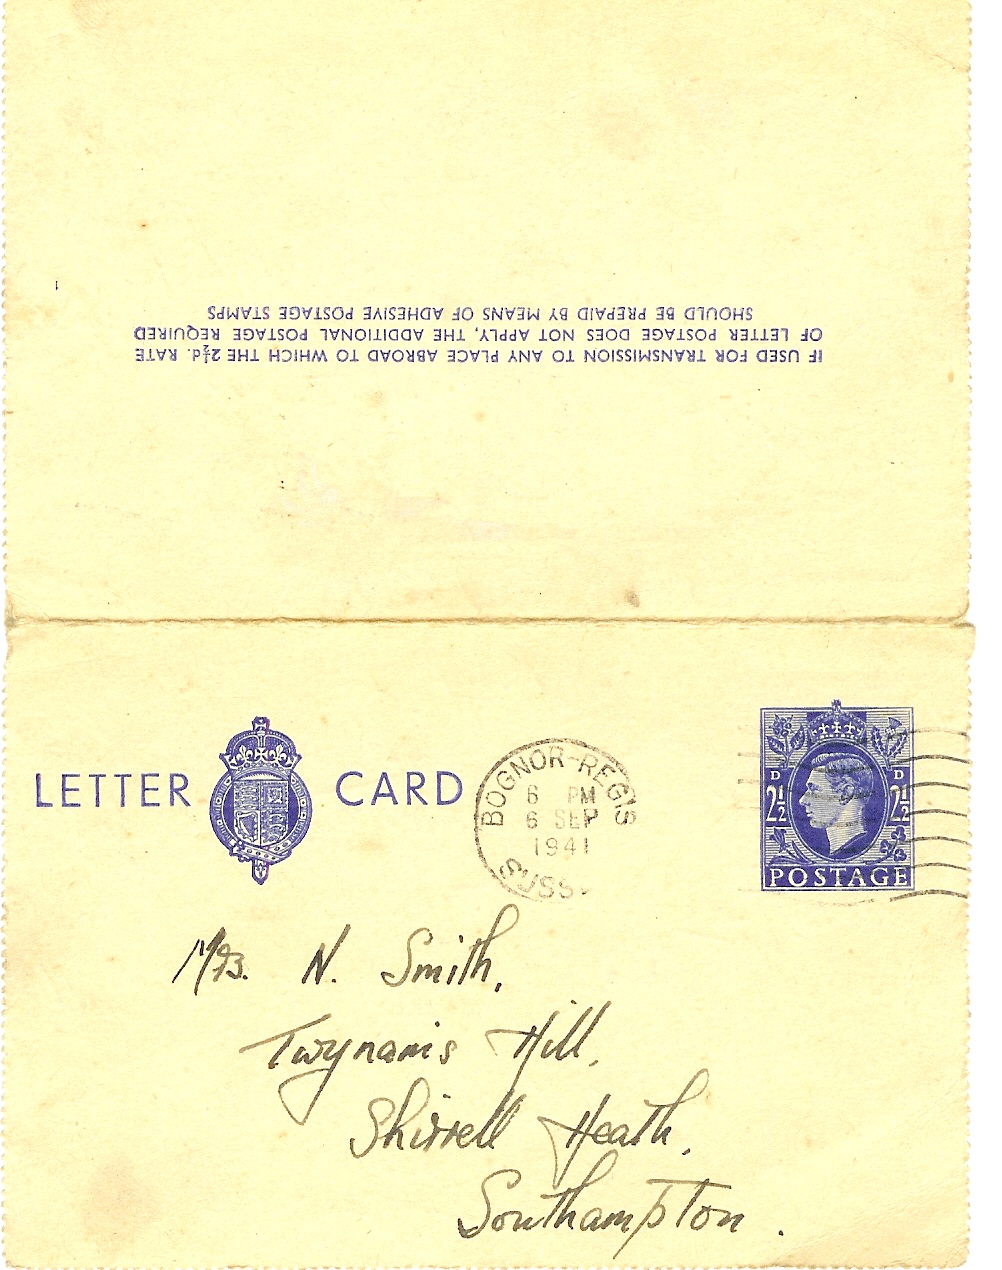 IF USED FOR TRANSMISSION TO ANY PLACE ABROAD TO WHICH THE 2½d. RATE
OF LETTER POSTAGE DOES NOT APPLY, THE ADDITIONAL POSTAGE REQUIRED
SHOULD BE PREPAID BY MEANS OF ADHESIVE POSTAGE STAMPS
LETTER CARD
BOGNOR-REGIS
6 PM
6 SEP
1941
SUSS
D D
2½ 2½
POSTAGE
Mrs. N. Smith,
Twynams Hill,
Shirrell Heath,
Southampton.